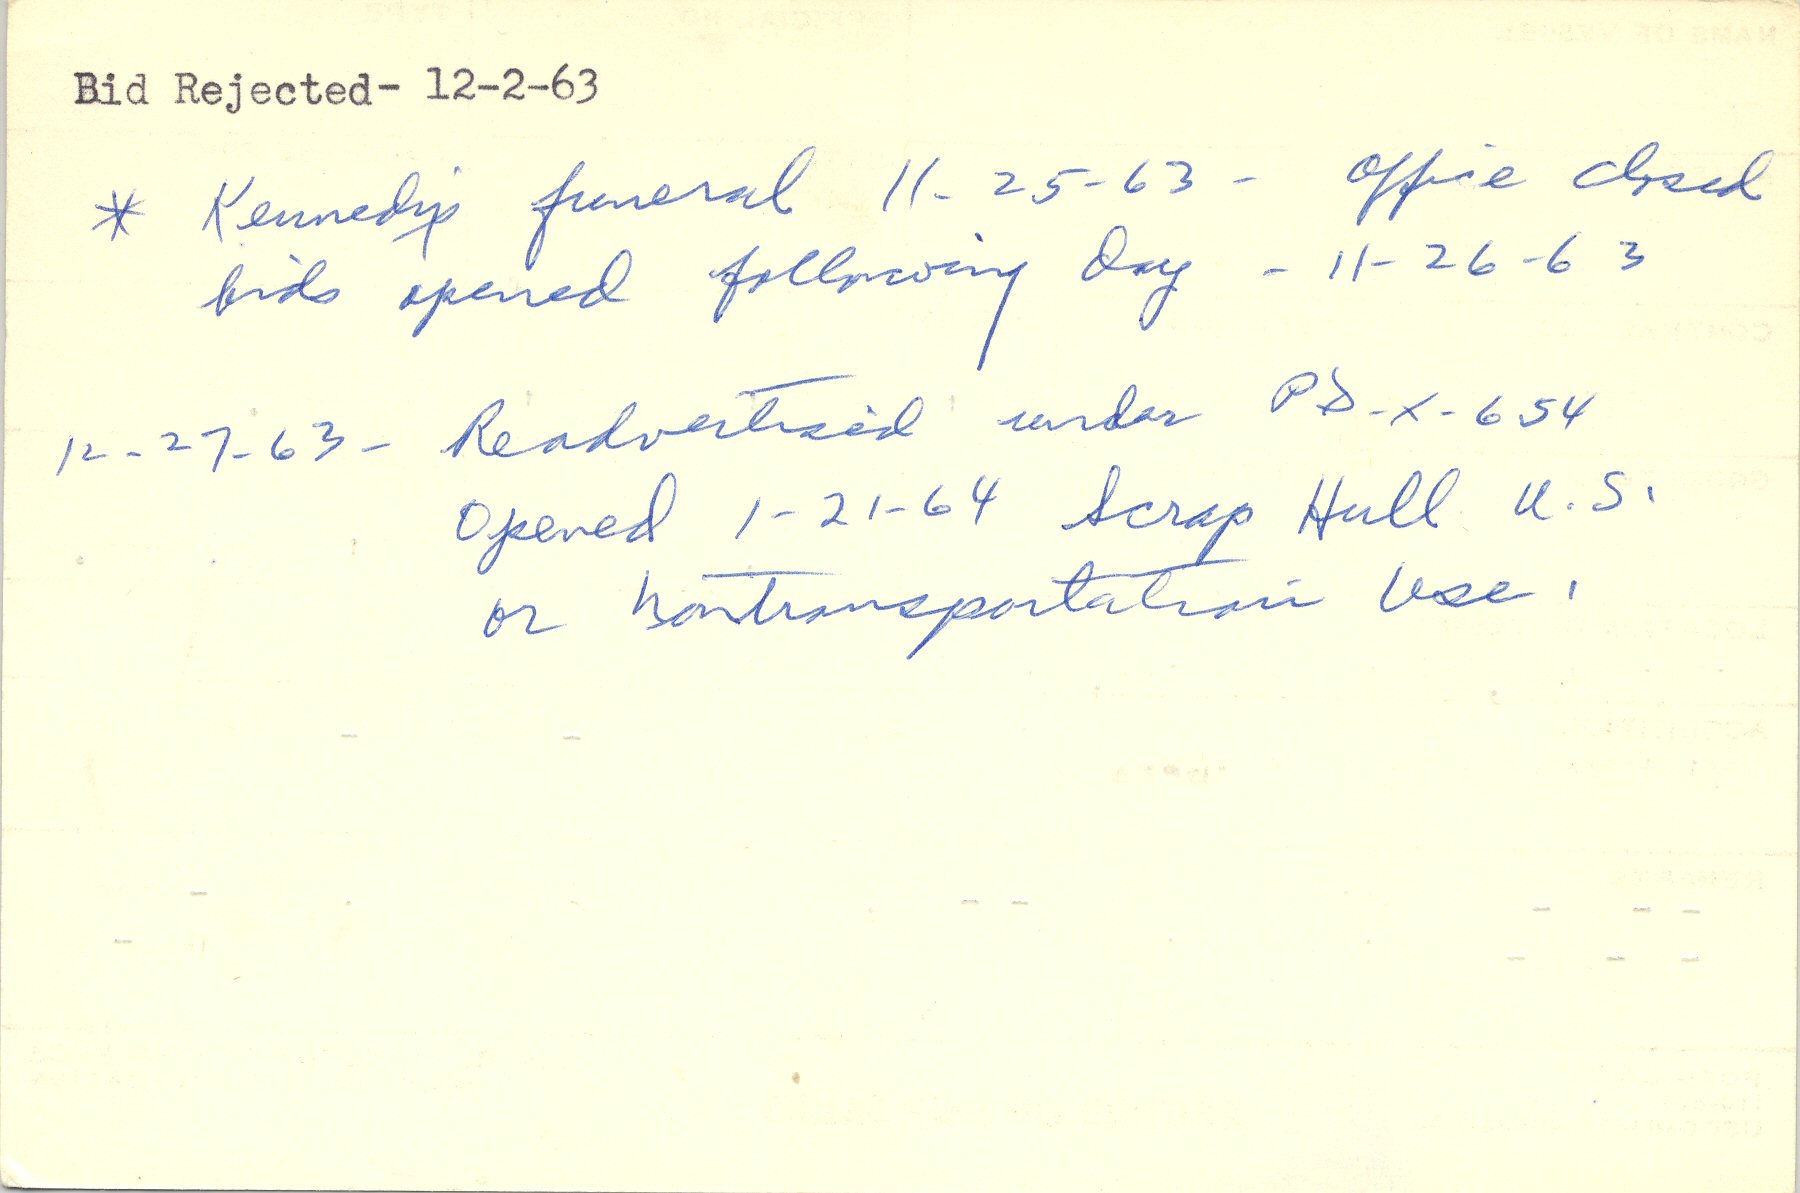 Bid Rejected- 12-2-63
* Kennedy's funeral 11-25-63 - office closed
bids opened following day - 11-26-63
12-27-63- Readvertised under PD-X-654
Opened 1-21-64 Scrap Hull U.S.
or Nontransportation Use.